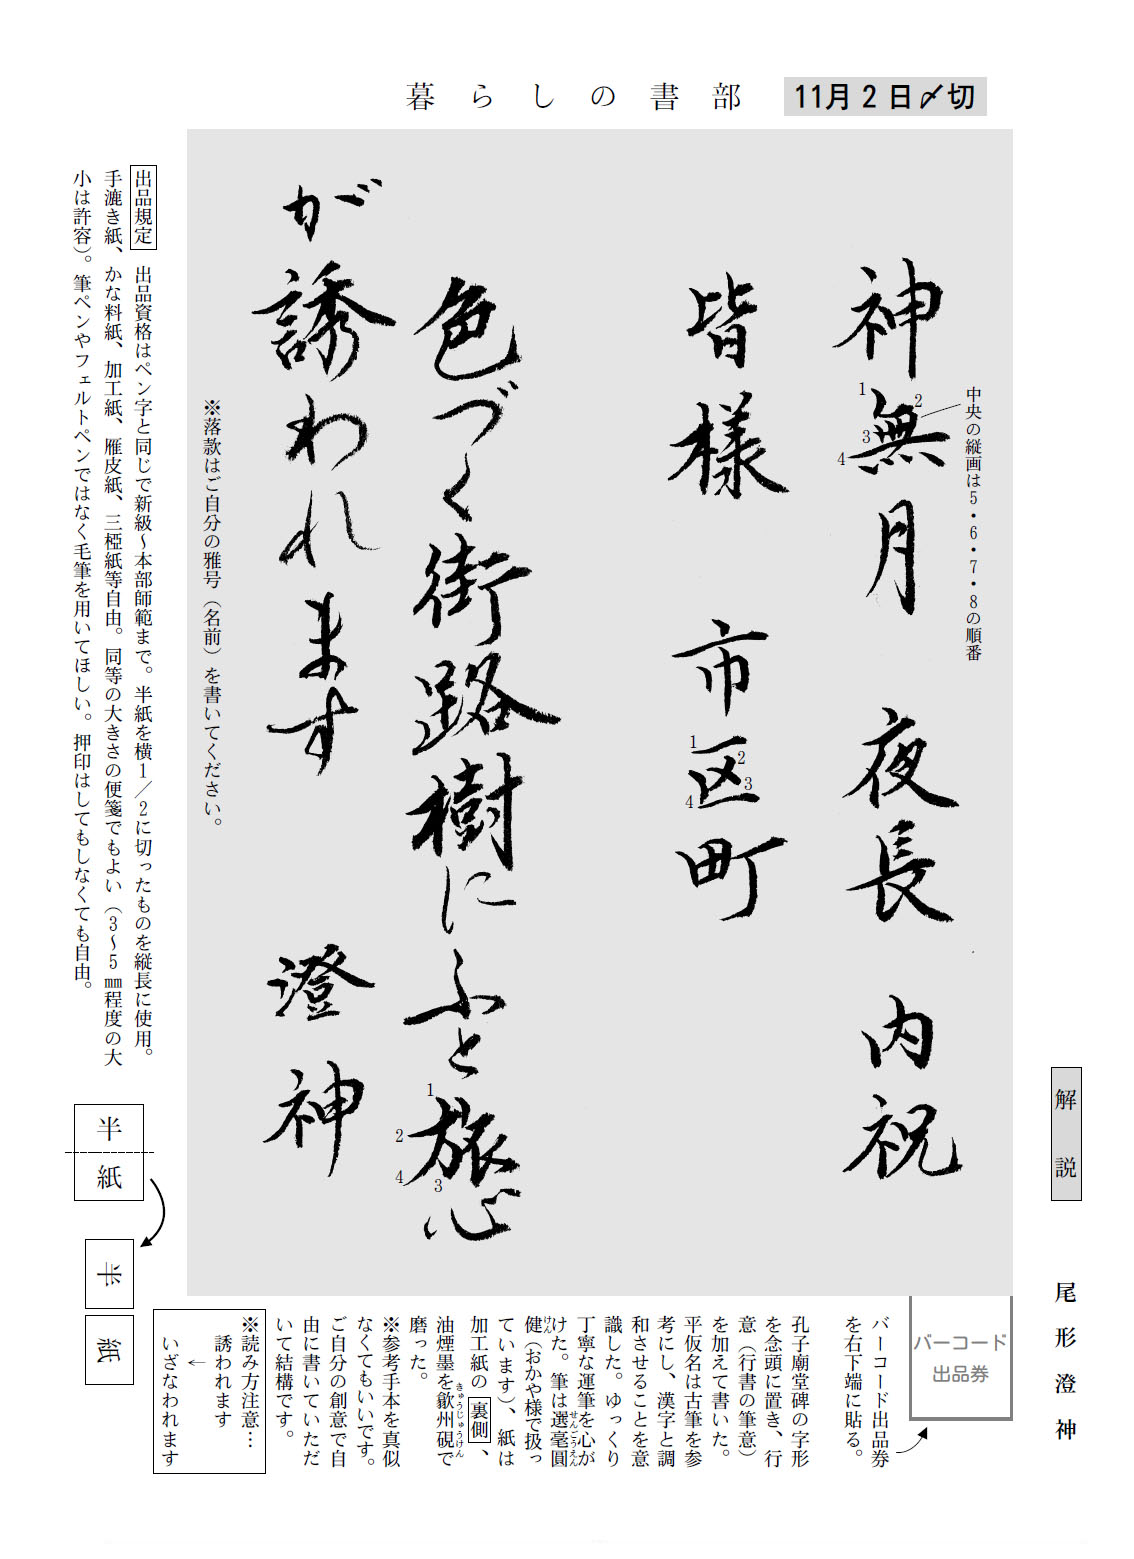 暮らしの書部
11月2日〆切
解説
尾形澄神
神無月 夜長 内祝
皆様 市区町
色づく街路樹にふと旅心
が誘われます 澄神
中央の縦画は5・6・7・8の順番
1
2
3
4
1
2
3
4
1
2
3
4
※落款はご自分の雅号（名前）を書いてください。
出品規定 出品資格はペン字と同じで新級～本部師範まで。半紙を横1／2に切ったものを縦長に使用。
手漉き紙、かな料紙、加工紙、雁皮紙、三椏紙等自由。同等の大きさの便箋でもよい（3～5㎜程度の大
小は許容）。筆ペンやフェルトペンではなく毛筆を用いてほしい。押印はしてもしなくても自由。
半
紙
半
紙
バーコード
出品券
バーコード出品券
を右下端に貼る。
孔子廟堂碑の字形
を念頭に置き、行
意（行書の筆意）
を加えて書いた。
平仮名は古筆を参
考にし、漢字と調
和させることを意
識した。ゆっくり
丁寧な運筆を心が
けた。筆は選毫圓
せんごうえん
健（おかや様で扱っ
けん
ています）、紙は
加工紙の裏側、
油煙墨を歙州硯で
きゅうじゅうけん
磨った。
※参考手本を真似
なくてもいいです。
ご自分の創意で自
由に書いていただ
いて結構です。
※読み方注意…
誘われます
↓
いざなわれます